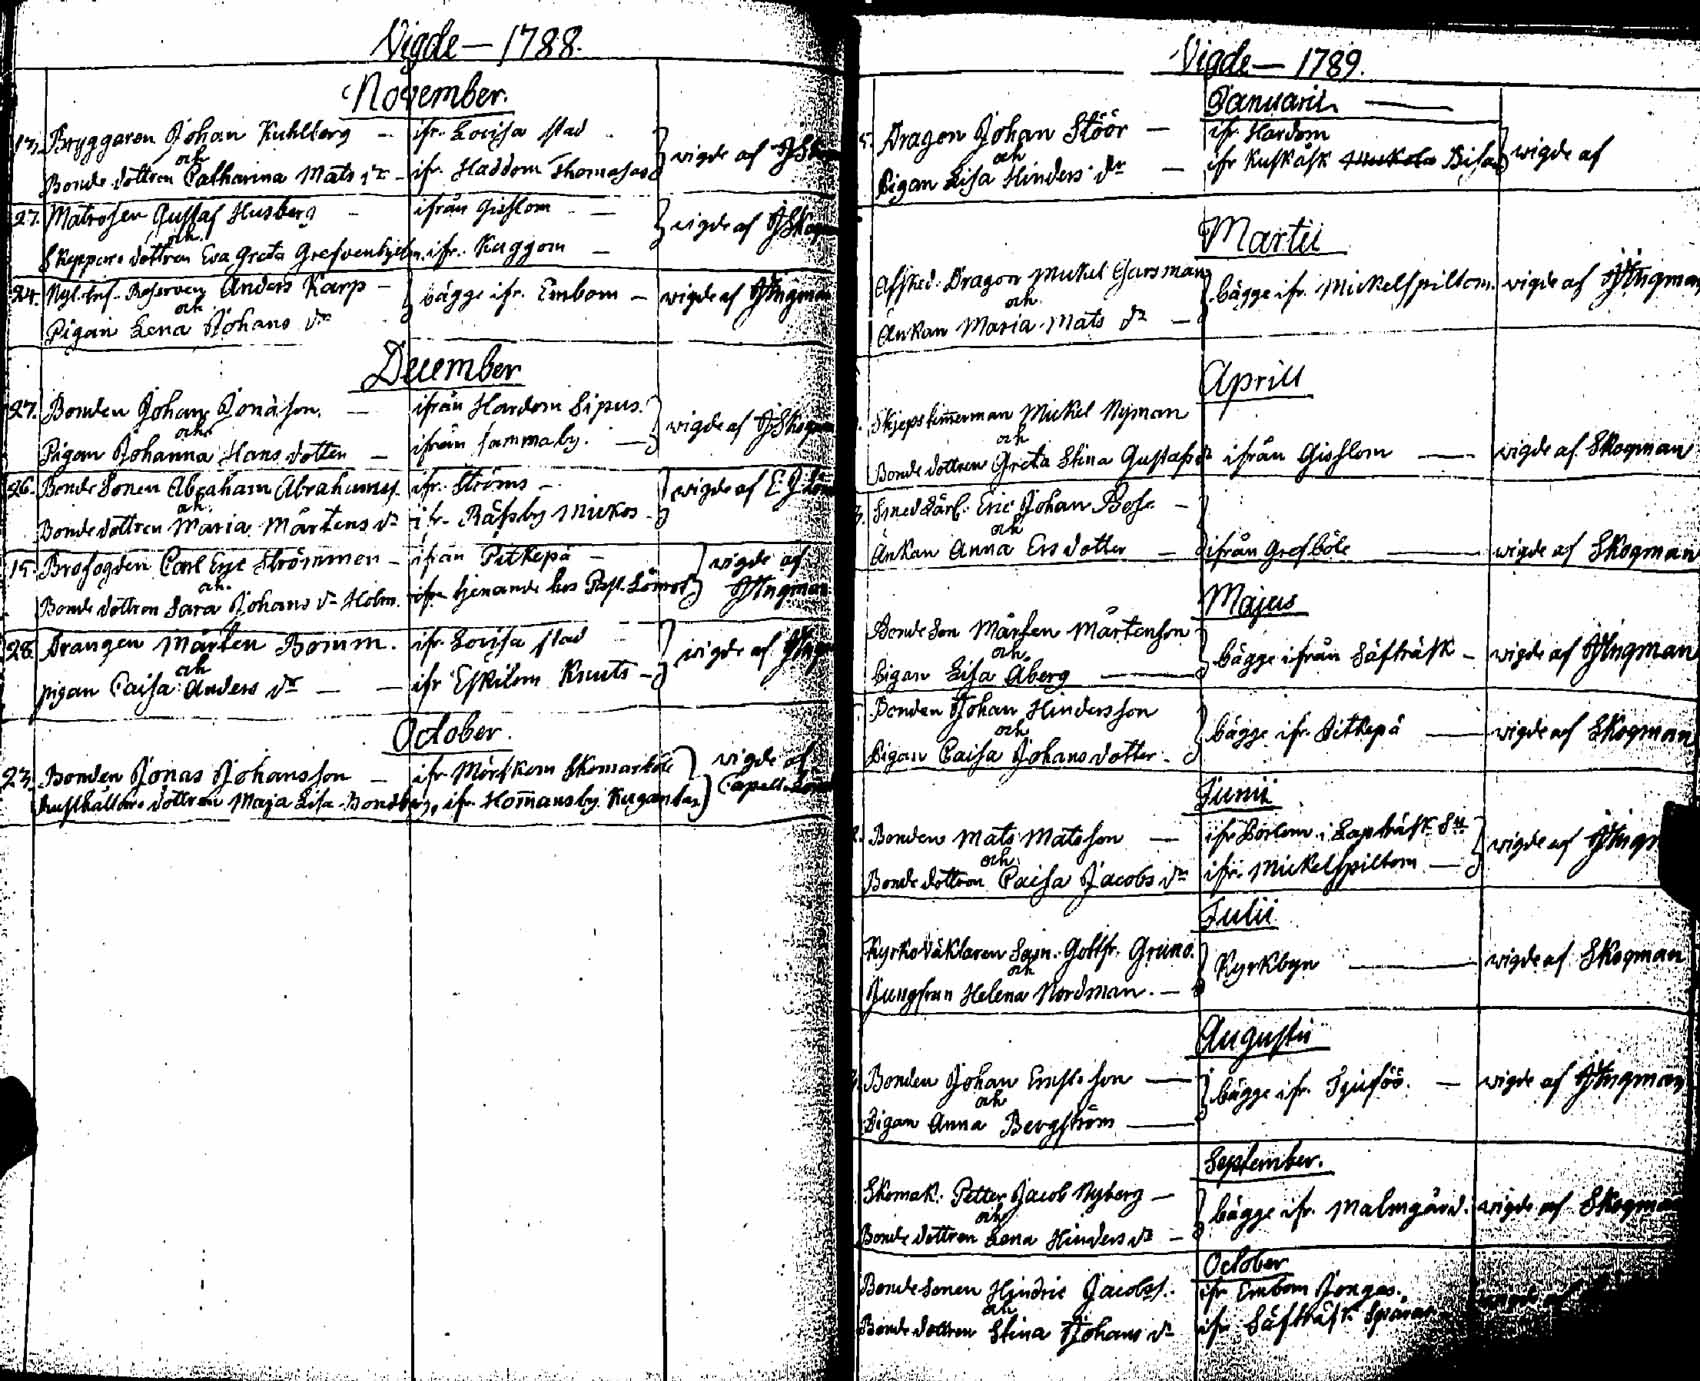 Vigde — 1788.
November.
13. Bryggaren Johan Kuhlberg — ifr. Lovisa stad
och
Bonde dottren Catharina Mats dr — ifr. Haddom Thomasas } vigde af
27. Matrosen Gustaf Husberg — ifrån Gislom —
och
Skeppare dottren Eva Greta ifr. Kuggom — } vigde af
24. Nyl. Inf. Reserven Anders Karp —
och
Pigan Lena Johans dr } bägge ifr. Embom — vigde af JIngman
December
27. Bonden Johan Jonason. — ifrån Hardom Sipus.
och
Pigan Johanna Hans dotter — ifrån samma by. — } vigde af JSkogman
26. Bonde Sonen Abraham Abrahamss. ifr. Ströms —
och
Bonde dottren Maria Mårtens dr ifr. Räfsby Mickos — } vigde af
15. Brofogden Carl Eric Strömmer — ifrån Pitkepä —
och
Bonde dottren Sara Johans dr Holm. ifr. tjenande hos Past. } vigde af JIngman
28. Drangen Mårten Bomm. ifr. Lovisa stad
och
pigan Caisa Anders dr — — ifr Eskilom Knuts — } vigde af
October.
23. Bonden Jonas Johansson — ifr Mörskom Skomarböle
Rusthållare dottren Maja Lisa ifr. Homansby } vigde af Capell.
Vigde — 1789.
Januarii —
5. Dragon Johan Stöör — ifr. Hardom
och
Pigan Lisa Hinders dr — ifr Kuskåsk } vigde af
Martii
Afsked. Dragon Mickel
och
Änkan Maria Mats dr — } bägge ifr. Mickelspiltom. vigde af JIngman
Aprill
Skjepstimerman Mickel Nyman
och
Bonde dottren Greta Stina Gustafs dr ifrån Gislom — vigde af Skogman
Smed Eric Johan —
och
Änkan Anna Ers dotter — } ifrån Grefböle — vigde af Skogman
Majus
Bonde Son Mårten Mårtenson
och
Pigan Lisa Åberg — } bägge ifrån Säfträsk — vigde af JIngman
Bonden Johan Hindersson
och
Pigan Caisa Johans dotter. } bägge ifr. Pitkepä — vigde af Skogman
Junii
Bonden Mats Matsson — ifr i Lapträsk
och
Bonde dottren Caisa Jacobs dr ifr. Mickelspiltom — } vigde af
Julii
Kyrko Väktaren Sam. Gottfr.
och
Jungfrun Helena Nordman. — } Kyrkbyn — vigde af Skogman
Augusti
Bonden Johan —
och
Pigan Anna Bergström — } bägge ifr. — vigde af JIngman
September.
Skomak. Petter Jacob Nyberg —
och
Bonde dottren Lena Hinders dr — } bägge ifr. Malmgård. vigde af Skogman
October
Bonde Sonen Hindric Jacobs. ifr Embom
och
Bonde dottren Stina Johans dr ifr Säfträsk